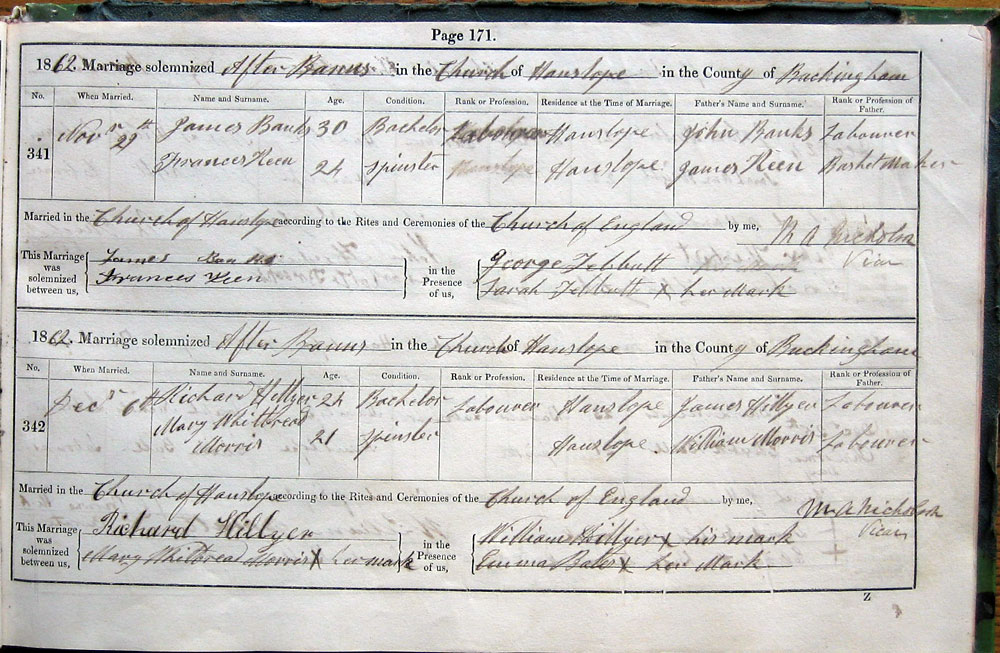 Page 171.
1862. Marriage solemnized After Banns in the Church of Hanslope in the County of Buckingham
No. When Married. Name and Surname. Age. Condition. Rank or Profession. Residence at the Time of Marriage. Father's Name and Surname. Rank or Profession of Father.
341 Novr 29th James Banks 30 Bachelor Labourer Hanslope John Banks Labourer
Frances Keen 24 Spinster Hanslope James Keen Basket Maker
Married in the Church of Hanslope according to the Rites and Ceremonies of the Church of England by me,
M A Nicholson
Vicar
This Marriage was solemnized between us, James Banks
Frances Keen
in the Presence of us, George Tebbutt
Sarah Tebbutt X her Mark
1862. Marriage solemnized After Banns in the Church of Hanslope in the County of Buckingham
No. When Married. Name and Surname. Age. Condition. Rank or Profession. Residence at the Time of Marriage. Father's Name and Surname. Rank or Profession of Father.
342 Decr 6th Richard Hillyer 24 Bachelor Labourer Hanslope James Hillyer Labourer
Mary Whitbread Morris 21 Spinster Hanslope William Morris Labourer
Married in the Church of Hanslope according to the Rites and Ceremonies of the Church of England by me,
M A Nicholson
Vicar
This Marriage was solemnized between us, Richard Hillyer
Mary Whitbread Morris X her mark
in the Presence of us, William Hillyer X his mark
Emma Bates X her Mark
Z